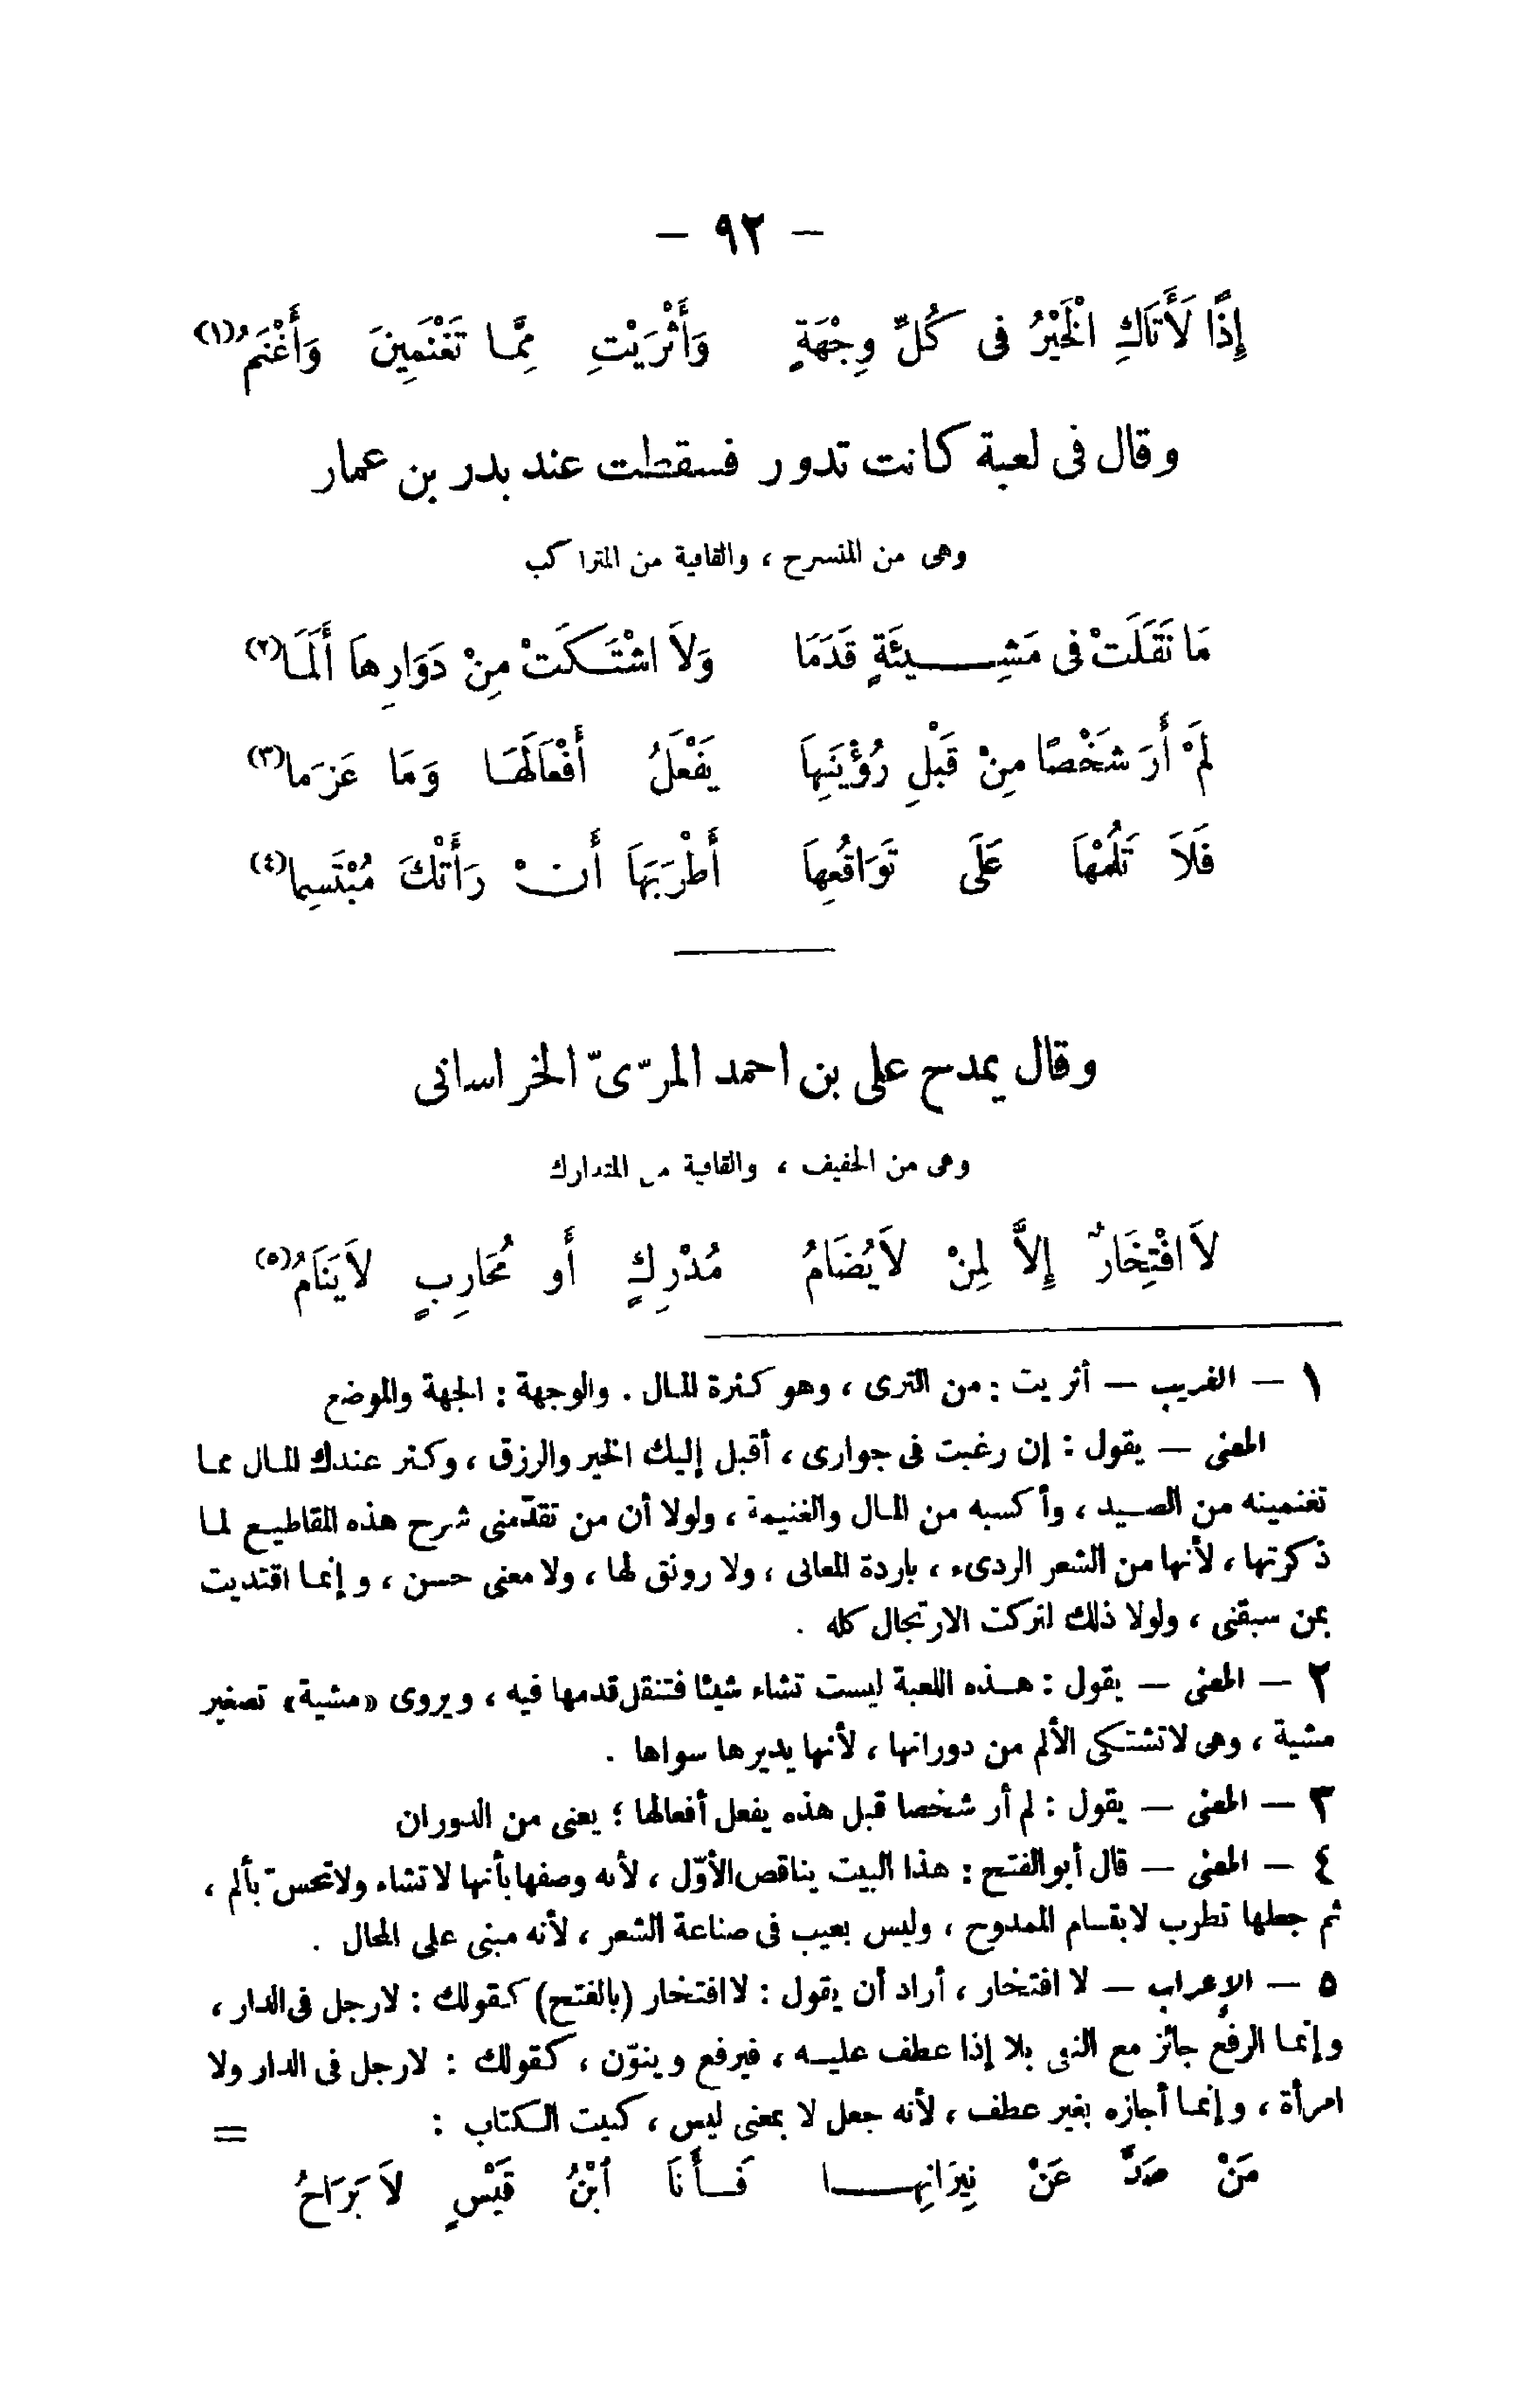 — ٩٢ —
إِذًا لَأَتَاكِ الْخَيْرُ فى كُلِّ وِجْهَةٍ وَأَثْرَيْتِ مِمَّا تَغْنَمِينَ وَأَغْنَمُ(١)
وقال فى لعبة كانت تدور فسقطت عند بدر بن عمار
وهى من المنسرح ، والقافية من المتراكب
مَا نَقَلَتْ فى مَشِيئَةٍ قَدَمَا وَلاَ اشْتَكَتْ مِنْ دَوَارِهاَ أَلَمَا(٢)
لَمْ أَرَ شَخْصًا مِنْ قَبْلِ رُؤْيَتِهاَ يَفْعَلُ أَفْعَالَهَا وَمَا عَزَما(٣)
فَلاَ تَلُمْهَا عَلَى تَوَاقُعِهاَ أَطْرَبَهاَ أَنْ رَأَتْكَ مُبْتَسِما(٤)
وقال يمدح على بن احمد المرّىّ الخراسانى
وهى من الخفيف ، والقافية من المتدارك
لاَ افْتِخَارٌ إِلاَّ لِمِنْ لاَيُضَامُ مُدْرِكٍ أَو مُحَارِبٍ لاَيَنَامُ(٥)
١ — الغريب — أثريت : من الثرى ، وهو كثرة المال . والوجهة : الجهة والموضع
المعنى — يقول : إن رغبت فى جوارى ، أقبل إليك الخير والرزق ، وكثر عندك المال مما
تغنمينه من الصيد ، وأكسبه من المال والغنيمة ، ولولا أن من تقدّمنى شرح هذه المقاطيع لما
ذكرتها ، لأنها من الشعر الردىء ، باردة المعانى ، ولا رونق لها ، ولا معنى حسن ، وإنما اقتديت
بمن سبقنى ، ولولا ذلك لتركت الارتجال كله .
٢ — المعنى — يقول : هذه اللعبة ليست تشاء شيئا فتنقل قدمها فيه ، ويروى «مشية» تصغير
مشية ، وهى لاتشتكى الألم من دورانها ، لأنها يديرها سواها .
٣ — المعنى — يقول : لم أر شخصا قبل هذه يفعل أفعالها ؛ يعنى من الدوران
٤ — المعنى — قال أبو الفتح : هذا البيت يناقص الأوّل ، لأنه وصفها بأنها لا تشاء ولاتحسّ بألم ،
ثم جعلها تطرب لابقسام الممدوح ، وليس بعيب فى صناعة الشعر ، لأنه مبنى على المحال .
٥ — الإعراب — لا افتخار ، أراد أن يقول : لا افتخار (بالفتح) كقولك : لارجل فى الدار ،
وإنما الرفع جائز مع النفى بلا إذا عطف عليه ، فيرفع وينوّن ، كقولك : لارجل فى الدار ولا
امرأة ، وإنما أجازه بغير عطف ، لأنه جعل لا بمعنى ليس ، كبيت الكتاب : =
مَنْ صَدَّ عَنْ نِيرَانِهَا فَأَنَا ٱبْنُ قَيْسٍ لاَ بَرَاحُ